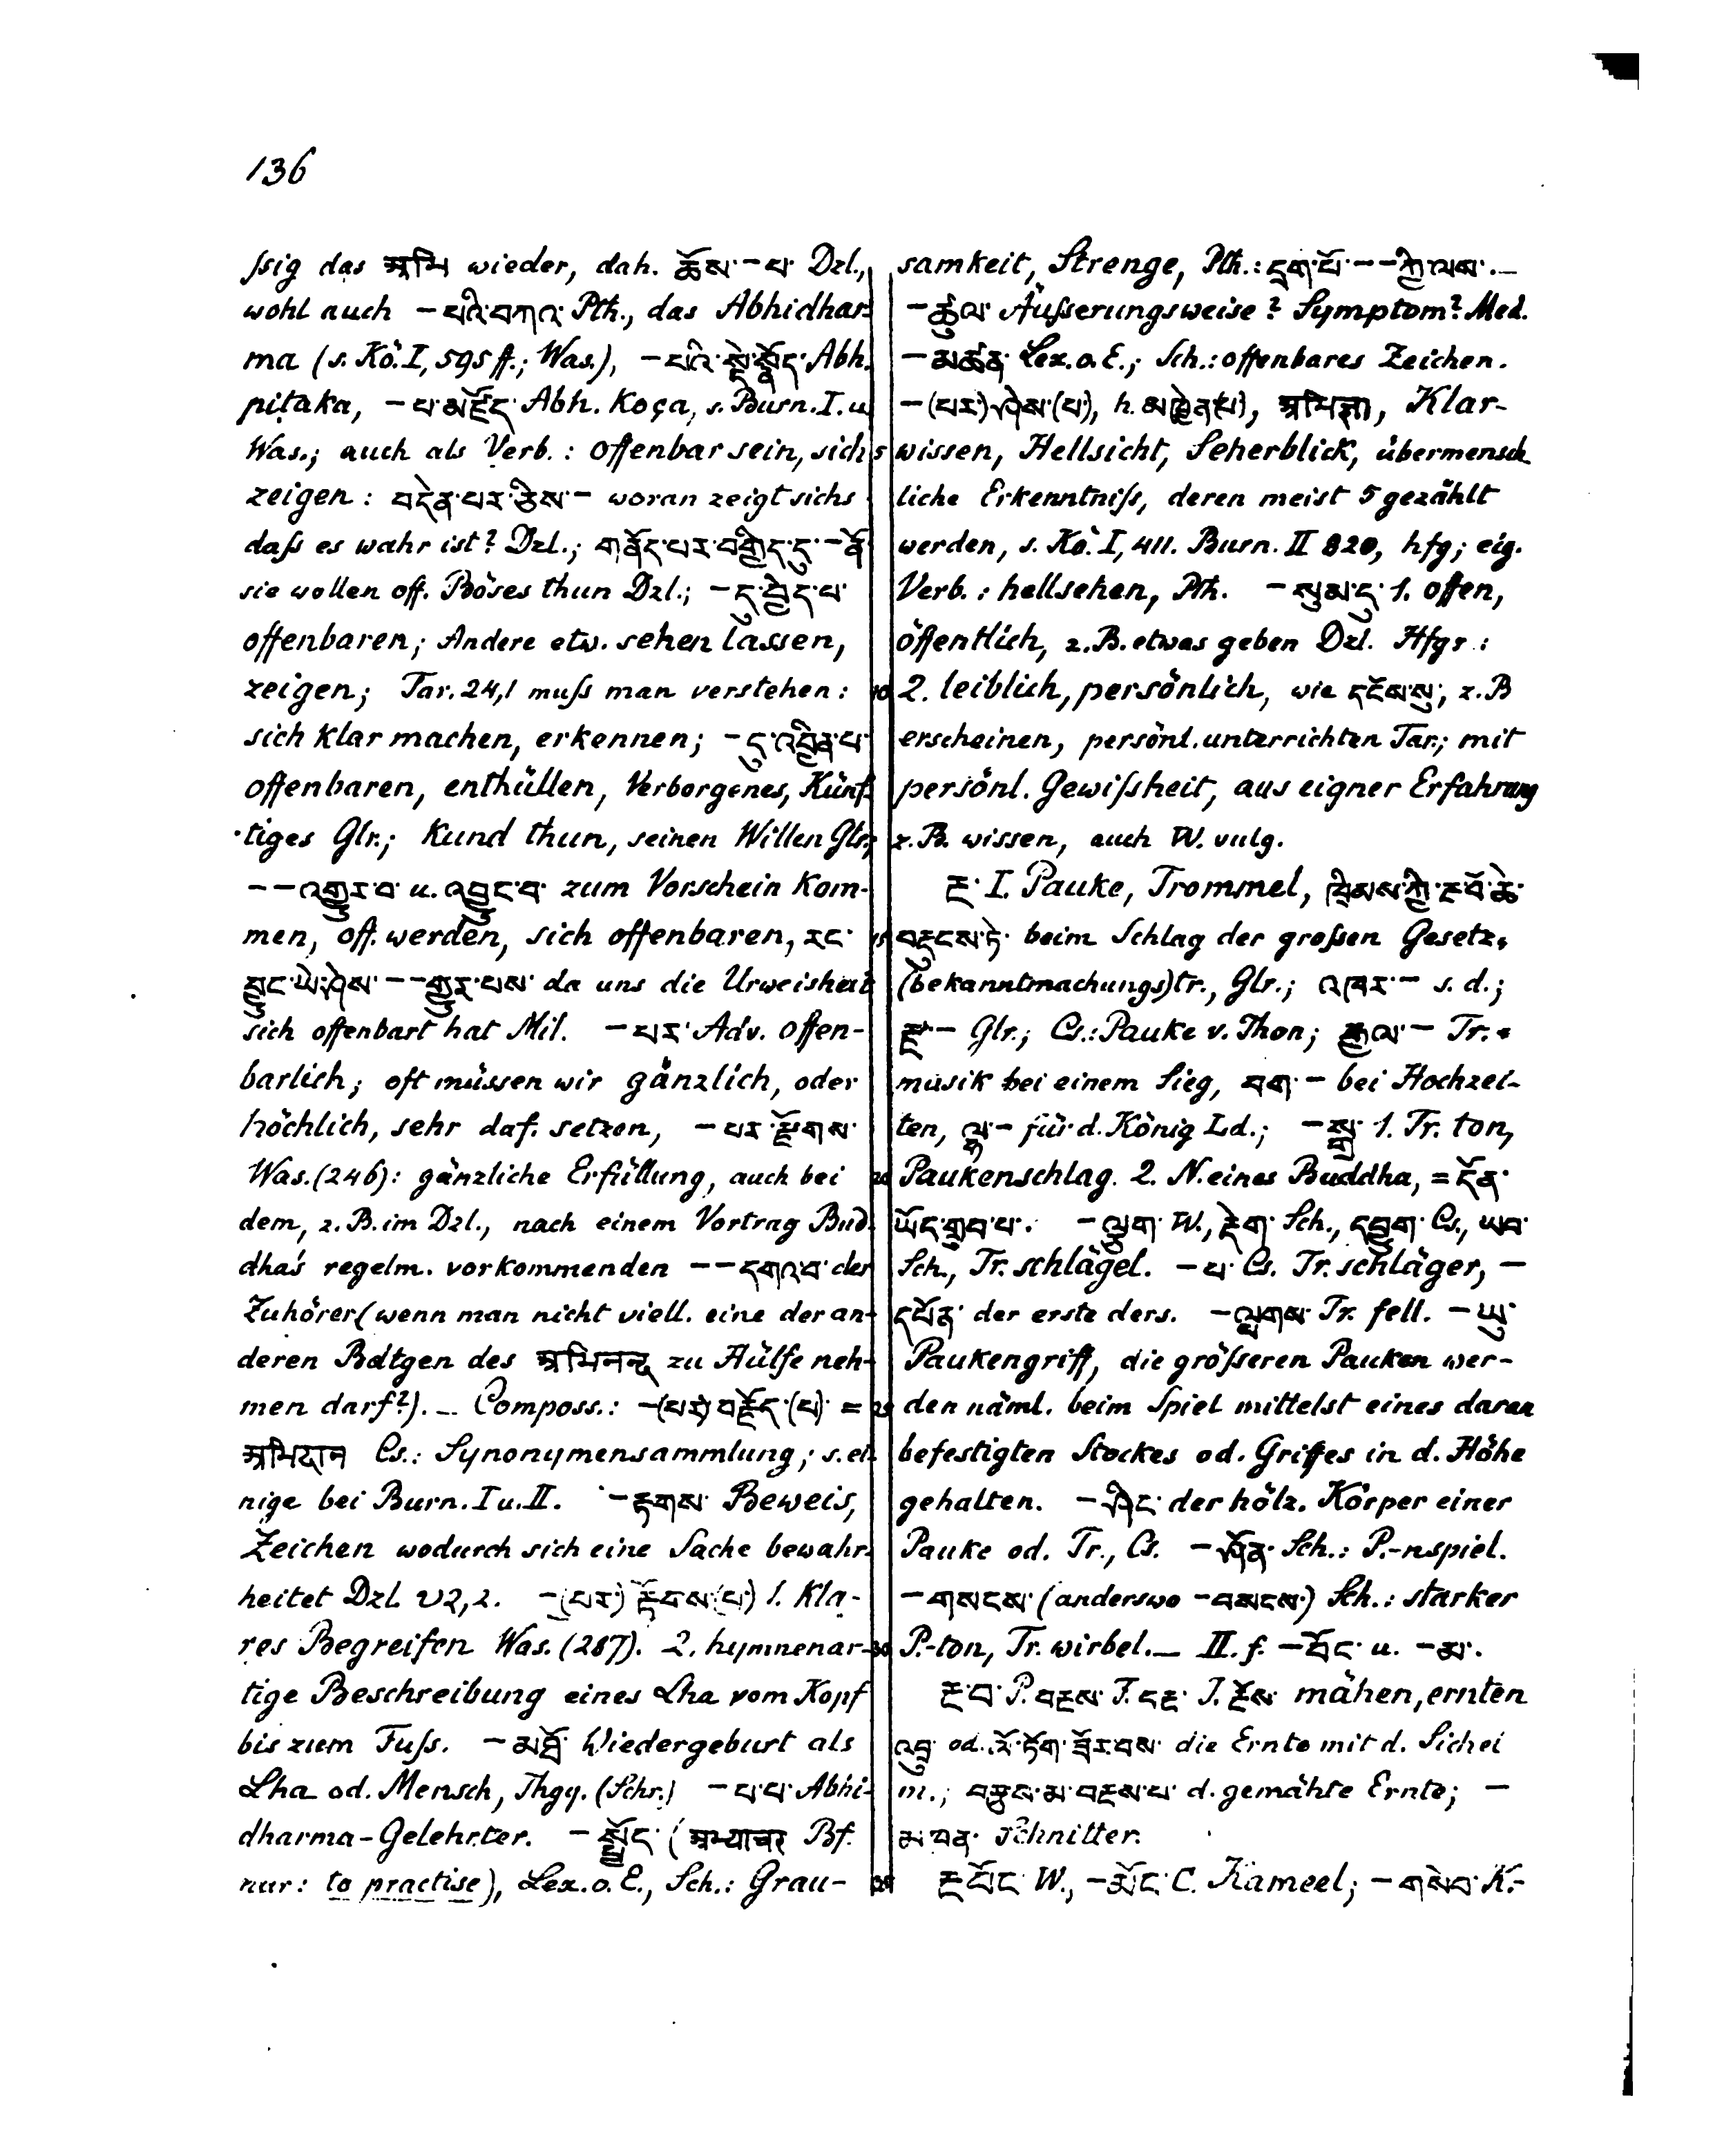 136
ſsig das अभि wieder, dah. ཆོས་ – པ་ Dzl.,
wohl auch – པའི་བཀའ་ Pth., das Abhidhar-
ma (s. Kö. I, 595 ff.; Was.), – པའི་སྡེ་སྣོད་ Abh.
piṭaka, – པ་མཛོད་ Abh. koça, s. Burn. I. u.
Was.; auch als Verb.: offenbar sein, sich
zeigen: བདེན་པར་ཅིས་ – woran zeigt sichs
daſs es wahr ist? Dzl.; གནོད་པར་བགྱིད་དུ་ – ནོ
sie wollen off. Böses thun Dzl.; – དུ་བྱེད་པ་
offenbaren; Andere etw. sehen lassen,
zeigen; Tar. 24,1 muſs man verstehen:
sich klar machen, erkennen; – དུ་འབྱིན་པ་
offenbaren, enthüllen, Verborgenes, Künf-
tiges Glr.; kund thun, seinen Willen Glr.;
– – འགྱུར་བ་ u. འབྱུང་བ་ zum Vorschein kom-
men, off. werden, sich offenbaren, རང་
བྱུང་ཡེ་ཤེས་ – – གྱུར་པས་ da uns die Urweisheit
sich offenbart hat Mil. – པར་ Adv. offen-
barlich; oft müssen wir gänzlich, oder
höchlich, sehr daf. setzen, – པར་རྫོགས་
Was. (246): gänzliche Erfüllung, auch bei
dem, z. B. im Dzl., nach einem Vortrag Bud-
dha's regelm. vorkommenden – – དགའ་བ་ der
Zuhörer (wenn man nicht viell. eine der an-
deren Bdtgen des अभिनन्द zu Hülfe neh-
men darf?). – Composs.: – (པར་) བརྗོད་ (པ)་ =
अभिधान Cs.: Synonymensammlung; s. ei-
nige bei Burn. I u. II. – རྟགས་ Beweis,
Zeichen wodurch sich eine Sache bewahr-
heitet Dzl. ২২, 2. – (པར་) རྟོགས་ (པ་) 1. kla-
res Begreifen Was. (287). 2. hymnenar-
tige Beschreibung eines Lha vom Kopf
bis zum Fuſs. – མཐོ་ Wiedergeburt als
Lha od. Mensch, Thgy. (Schr.) – པ་པ་ Abhi-
dharma-Gelehrter. – སྤྱོད་ ( Bf.
nur: to practise), Lex. o. E., Sch.: Grau-
samkeit, Strenge, Pth.: དྲག་པོ་ – – ཀྱི་ལས་. –
– ཚུལ་ Äuſserungsweise? Symptom? Med.
– མཚན་ Lex. o. E.; Sch.: offenbares Zeichen.
– (པར་) ཤེས་ (པ), h. མཁྱེན་(པ), अभिज्ञा, Klar-
5 wissen, Hellsicht, Seherblick, übermensch
liche Erkenntniſs, deren meist 5 gezählt
werden, s. Kö. I, 411. Burn. II 820, hfg; eig.
Verb.: hellsehen, Pth. – སུམ་དུ་ 1. offen,
öffentlich, z. B. etwas geben Dzl. Hfgs:
10 2. leiblich, persönlich, wie དངོས་སུ, z. B
erscheinen, persönl. unterrichten Tar.; mit
persönl. Gewiſsheit, aus eigner Erfahrung
z. B. wissen, auch W. vulg.
རྔ་ I. Pauke, Trommel, ཁྲིམས་ཀྱི་རྔ་བོ་ཆེ་
15 བརྡུངས་ཏེ་ beim Schlag der groſsen Gesetz-
(bekanntmachungs)tr., Glr.; འཁར་ – s. d.;
རྫ་ – Glr.; Cs.: Pauke v. Thon; རྒྱལ་ – Tr.=
musik bei einem Sieg, བག་ – bei Hochzei-
ten, ལྷ་ – für d. König Ld.; – སྒྲ་ 1. Tr. ton,
20 Paukenschlag. 2. N. eines Buddha, = དོན་
ཡོད་གྲུབ་པ་. – ལྕུག་ W., རྡེག་ Sch., དབྱུག་ Cs., ཡབ་
Sch., Tr. schlägel. – པ་ Cs. Tr. schläger, –
དཔོན་ der erste ders. – ལྤགས་ Tr. fell. – ཡུ་
Paukengriff, die gröſseren Pauken wer-
25 den näml. beim Spiel mittelst eines daran
befestigten Stockes od. Griffes in d. Höhe
gehalten. – ཤིང་ der hölz. Körper einer
Pauke od. Tr., Cs. – ཤོན་ Sch.: P.-nspiel.
– གསངས་ (anderswo – བསངས་) Sch.: starker
30 P.-ton, Tr. wirbel. – II. f. – བོང་ u. – མ་.
རྔ་བ་ P. བརྔས་ F. དརྔ་ J. རྔོས་ mähen, ernten
འབྲུ་ od. ལོ་ཏོག་ ཟོར་བས་ die Ernte mit d. Sichel
m.; བརྔས་མ་བརྔས་པ་ d. gemähte Ernte; –
མ་བན་ Schnitter.
35 རྔ་བོང་ W., – མོང་ C. Kameel; – གསེབ་ K.-